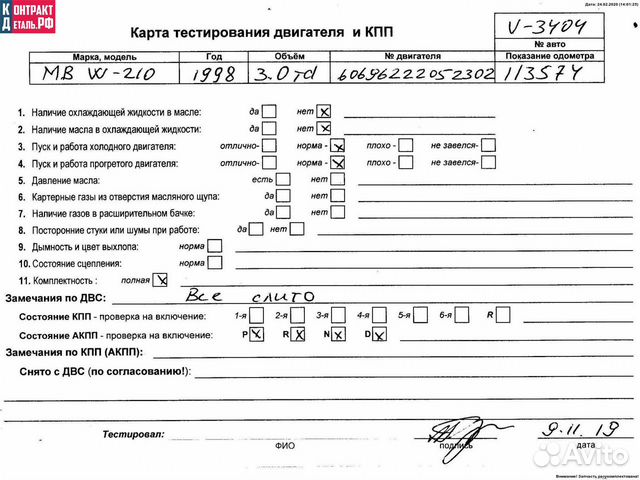 Дата: 24.02.2020 (14:01:25)
КОНТРАКТ
ДЕТАЛЬ.РФ
Карта тестирования двигателя и КПП
V-3404
№ авто
Марка, модель Год Объём № двигателя Показание одометра
MB W-210 1998 3.0 td 60696222052302 113574
1. Наличие охлаждающей жидкости в масле: да нет x
2. Наличие масла в охлаждающей жидкости: да нет x
3. Пуск и работа холодного двигателя: отлично- норма - x плохо - не завелся-
4. Пуск и работа прогретого двигателя: отлично- норма - x плохо - не завелся-
5. Давление масла: есть нет
6. Картерные газы из отверстия масляного щупа: да нет
7. Наличие газов в расширительном бачке: да нет
8. Посторонние стуки или шумы при работе: да нет
9. Дымность и цвет выхлопа: норма
10. Состояние сцепления: норма
11. Комплектность: полная x
Замечания по ДВС: Все слито
Состояние КПП - проверка на включение: 1-я 2-я 3-я 4-я 5-я 6-я R
Состояние АКПП - проверка на включение: P x R x N x D x
Замечания по КПП (АКПП):
Снято с ДВС (по согласованию!):
Тестировал: 9.11.19
ФИО подпись дата
Avito
Внимание! Запчасть разукомплектована!